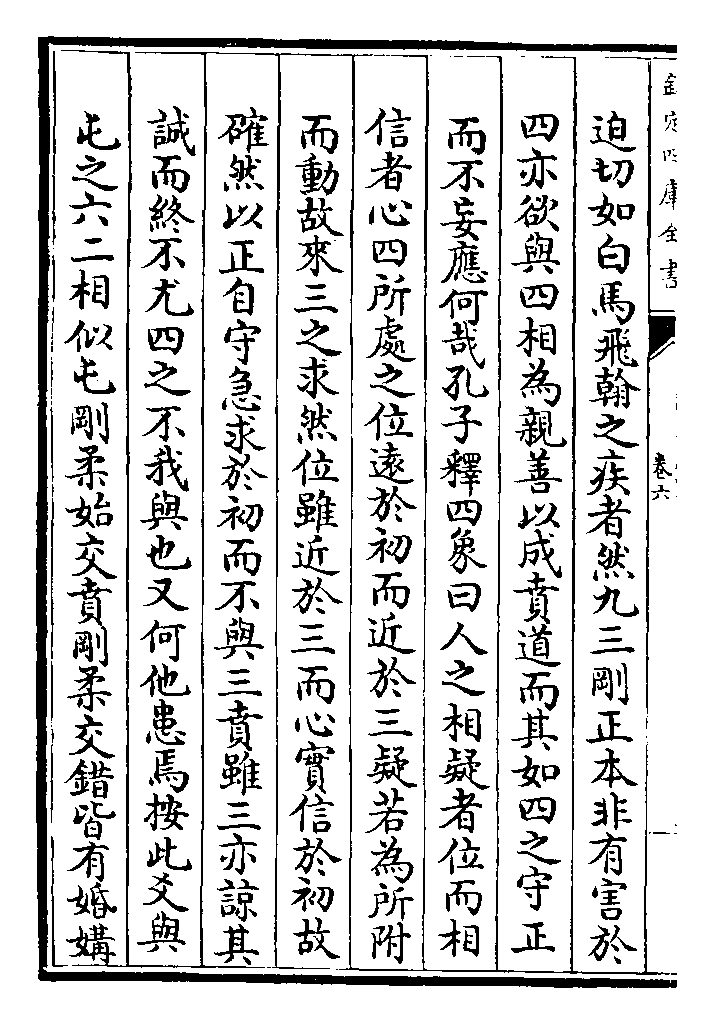 欽定四庫全書
卷六
迫切如白馬飛翰之疾者然九三剛正本非有害於
四亦欲與四相為親善以成賁道而其如四之守正
而不妄應何哉孔子釋四象曰人之相疑者位而相
信者心四所處之位遠於初而近於三疑若為所附
而動故來三之求然位雖近於三而心實信於初故
確然以正自守急求於初而不與三賁雖三亦諒其
誠而終不尤四之不我與也又何他患焉按此爻與
屯之六二相似屯剛柔始交賁剛柔交錯皆有婚媾